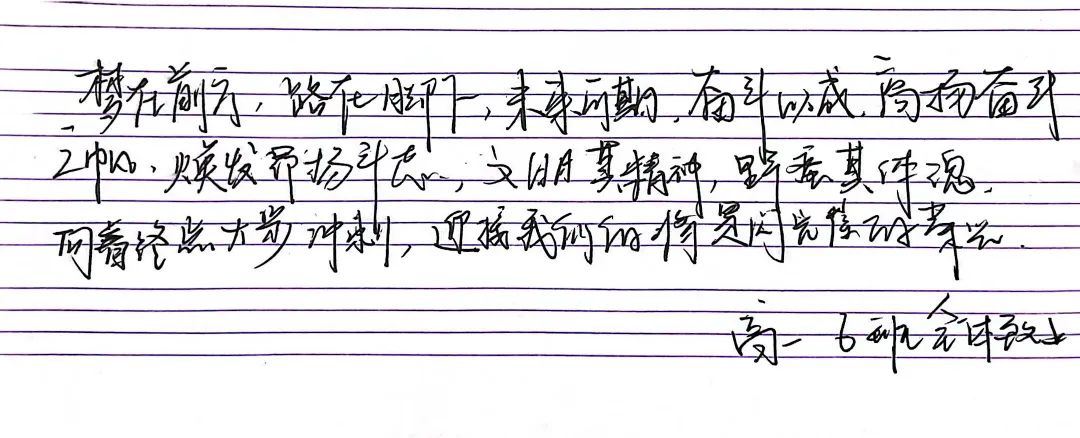 梦在前方，路在脚下，未来可期，奋斗以成，高扬奋斗
之帆，焕发昂扬斗志，文明其精神，野蛮其体魄，
向着终点大步冲刺，迎接我们的将是闪光的荣光．
高一 6班全体致上